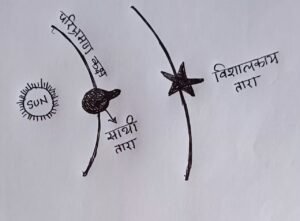 परिभ्रमण कक्ष
SUN
साथी
तारा
विशालकाय
तारा